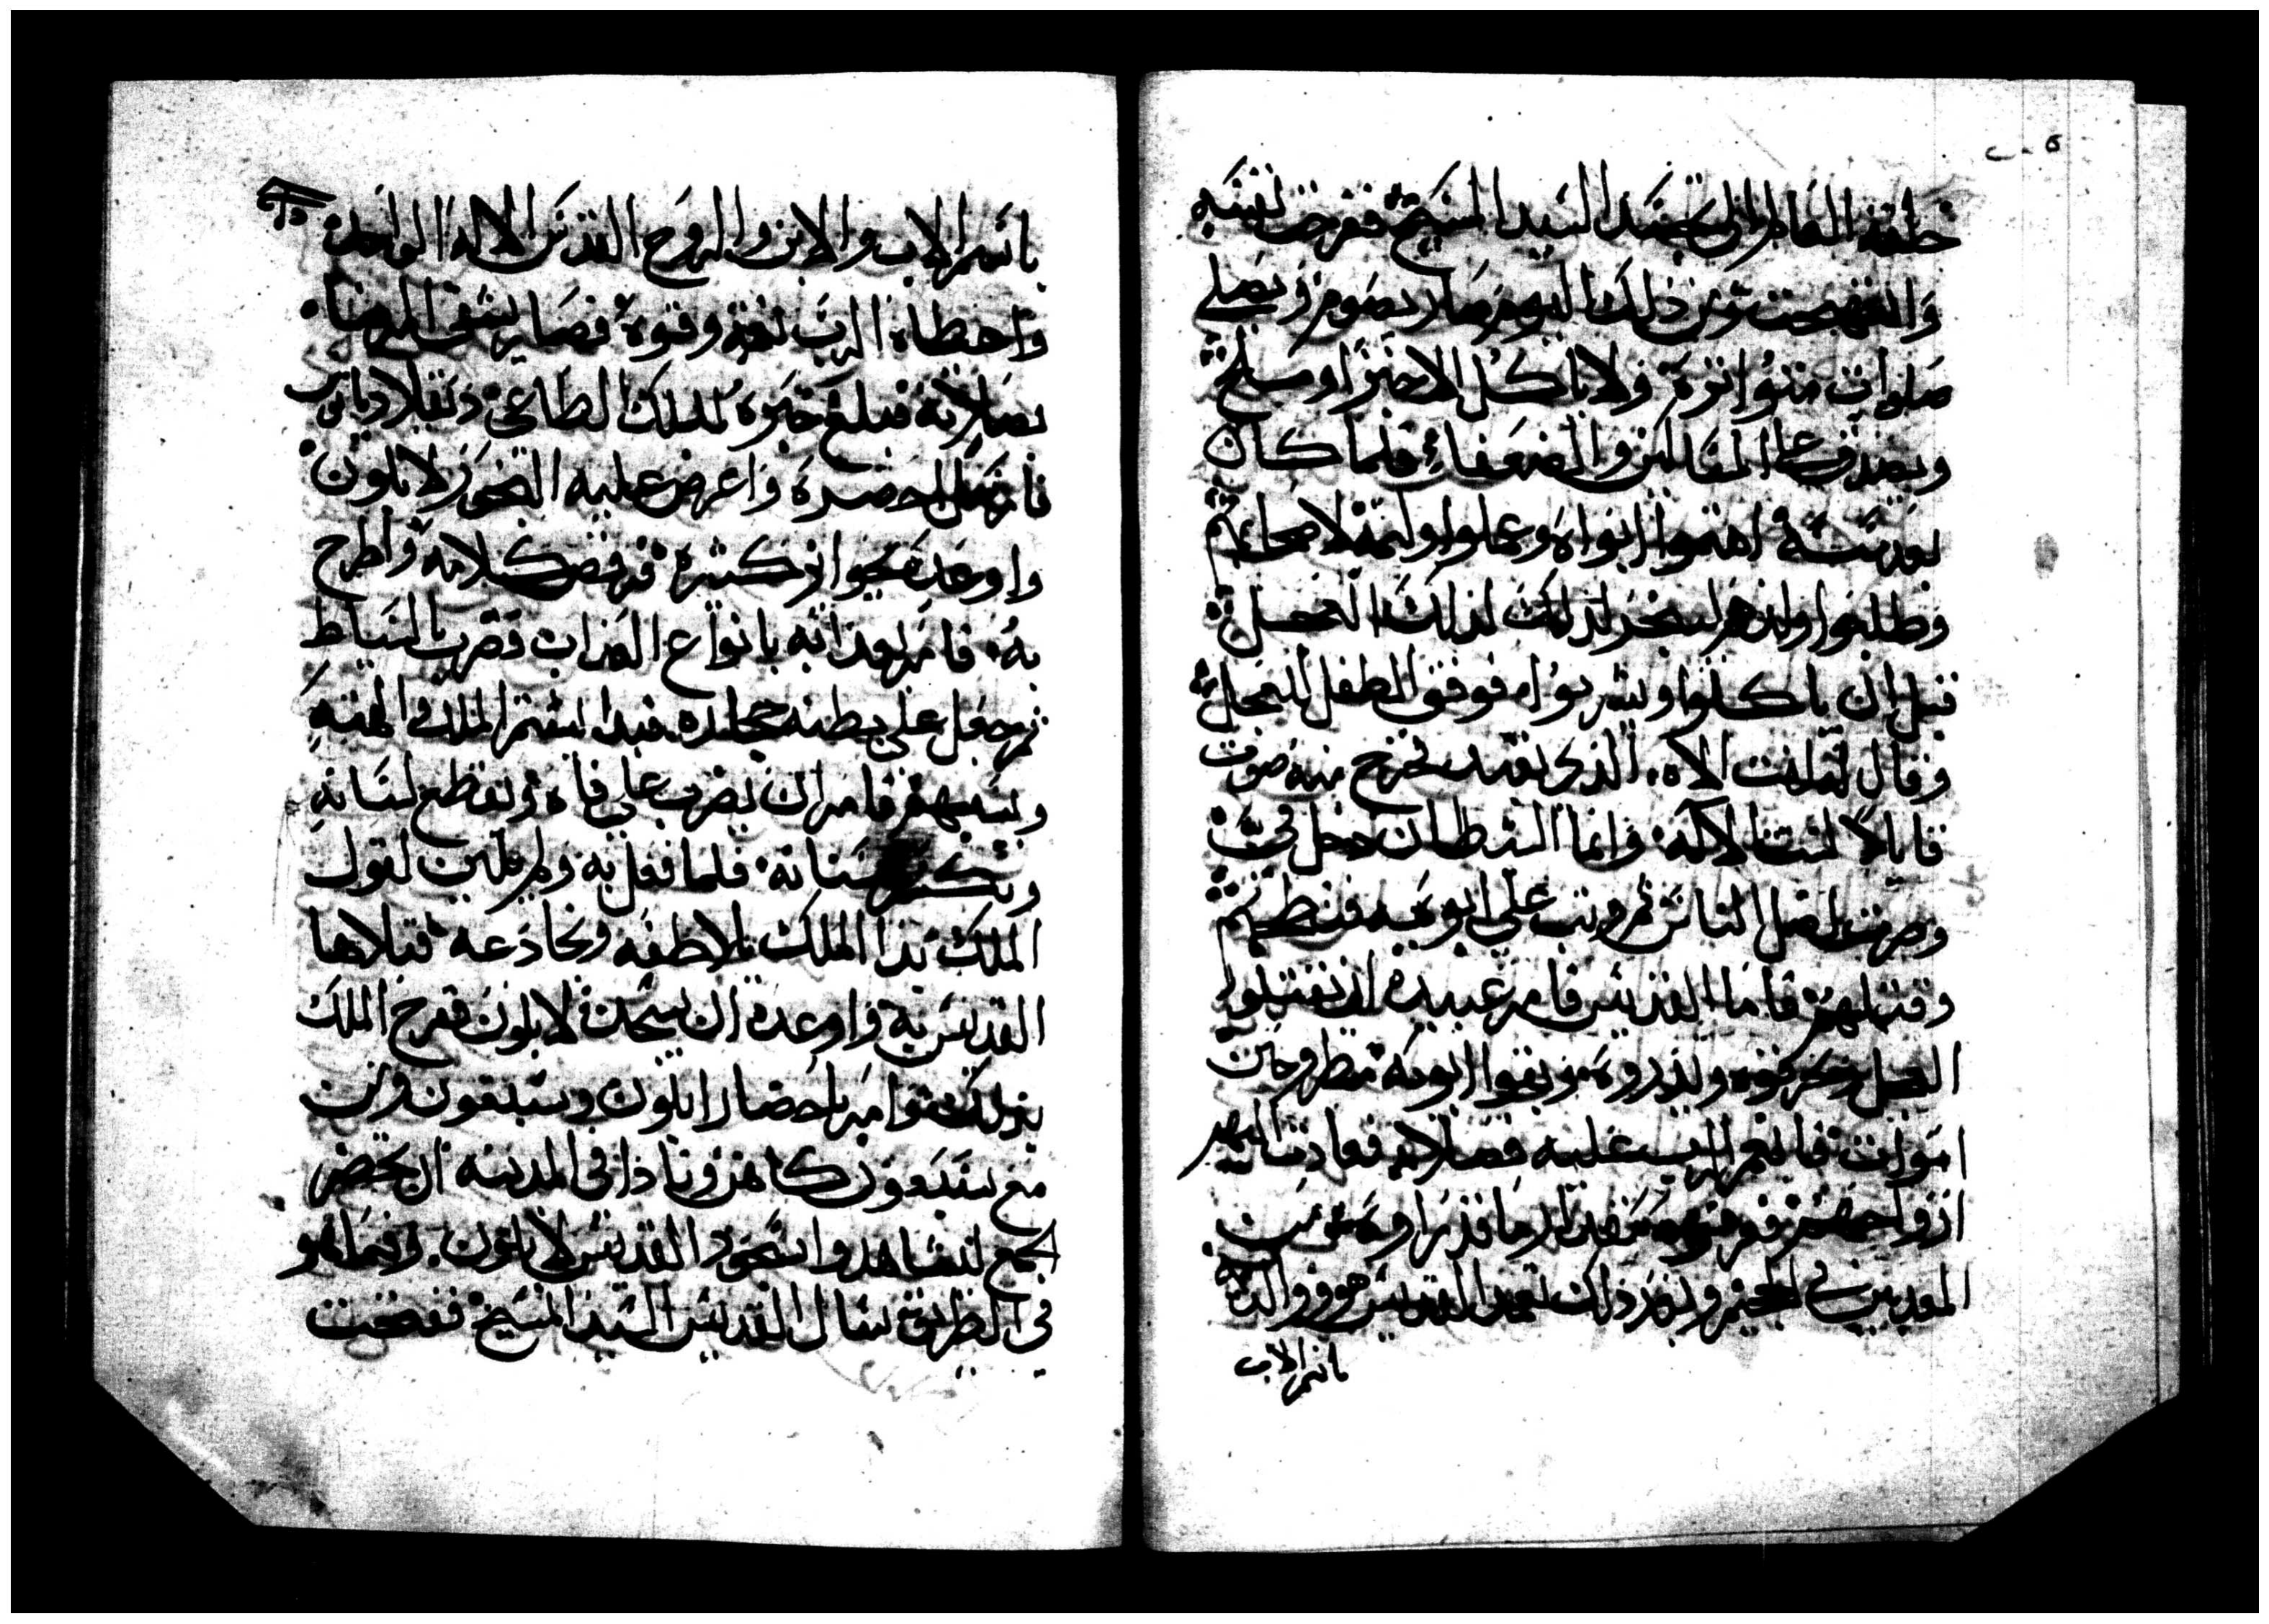 خلقة العالم الى تجسد السيد المسيح ففرحت نفسه
وابتهجت ومن ذلك اليوم صار يصوم ويصلي
صلوات متواترة ولا ياكل الا خبزا وملح
ويصدق على المساكين والضعفاء فلما كان
بعد سنة اهتموا ابواه وعملوا وليمة لاصحابهم
وطلبوا ولدهم ليبخر لذلك العجل
قبل ان ياكلوا ويشربوا فوقف الطفل للعجل
وقال له انت الاه الذي تعبد فخرج منه صوت
قايلا لست انا الاله وانما الشيطان دخل في
وصرت اضل الناس ثم وثب على ابويه فنطحهم
وقتلهم فاما القديس فامر عبيده ان يقتلوا
العجل ويحرقوه ويذروه وبقوا ابويه مطروحين
اموات فانعم الرب عليه فصلا فعادت اليهم
ارواحهم فعرفوه بمقدار ما قد راوه من
المعذبين في الجحيم وبعد ذلك تعمد القديس هو ووالديه
باسم الاب
باسم الاب والابن والروح القدس الاله الواحد
واعطاه الرب نعمة وقوة فصار يشفي المرضا
بصلاته فبلغ خبره للملك الطاغي دقلاديانوس
فارسل احضره واعرض عليه البخور لابلون
واوعده بجوايز كثيرة فرفض كلامه واطرح
به فامر بعذابه بانواع العذاب وضرب بالسياط
ثم جعل على بطنه حجارة فبدا يشتم الملك والهته
ويسبهم فامر ان يضرب على فاه ويقطع لسانه
وتكسر اسنانه فلما فعل به ولم يلين لقول
الملك بدا الملك يلاطفه ويخادعه فتلاها
القديس به واوعده ان يسجد لابلون ففرح الملك
بذلك وامر باحضار ابلون وسبعون وثن
مع سبعون كاهن ونادا في المدينة ان يحضر
الجمع ليشاهدوا سجود القديس لابلون وفيما هو
في الطريق سال القديس السيد المسيح ففتحت